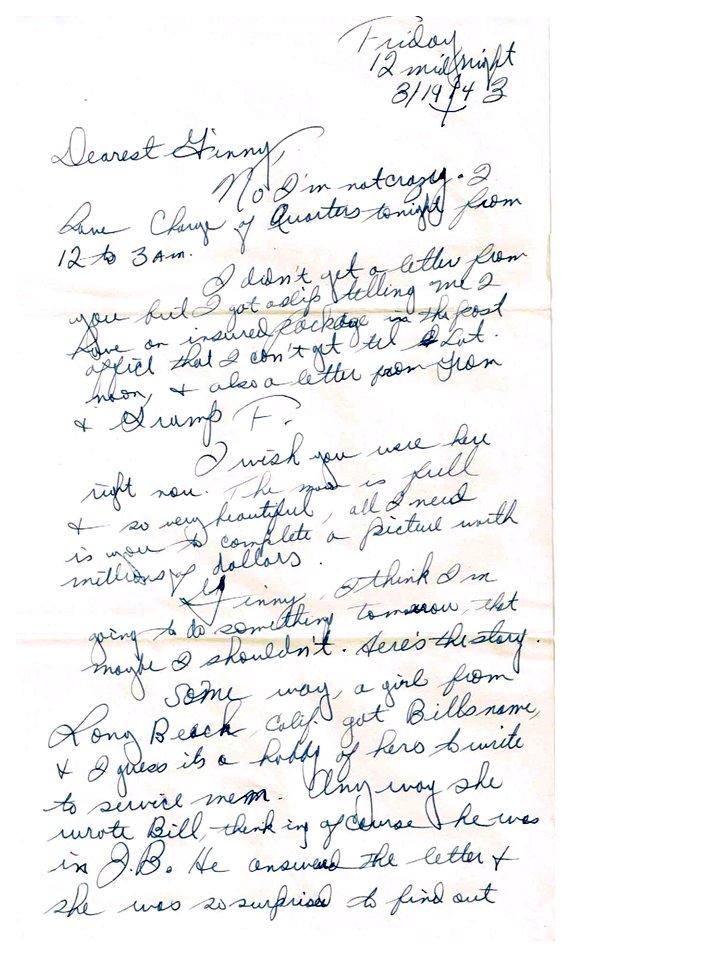 Friday
12 midnight
3/19/43
Dearest Ginny,
No I'm not crazy. I
have Charge of Quarters tonight from
12 to 3 AM.
I didn't get a letter from
you but I got a slip telling me I
have an insured package in the post
office that I can't get til Sat.
noon, & also a letter from Gram
& Gramp F.
I wish you were here
right now. The moon is full
& so very beautiful, all I need
is you to complete a picture worth
millions of dollars.
Ginny, I think I'm
going to do something tomorrow, that
maybe I shouldn't. Here's the story.
Some way, a girl from
Long Beach, Calif. got Bills name,
& I guess its a hobby of hers to write
to service men. Any way she
wrote Bill, thinking of course he was
in J.B. He answered the letter &
she was so surprised to find out